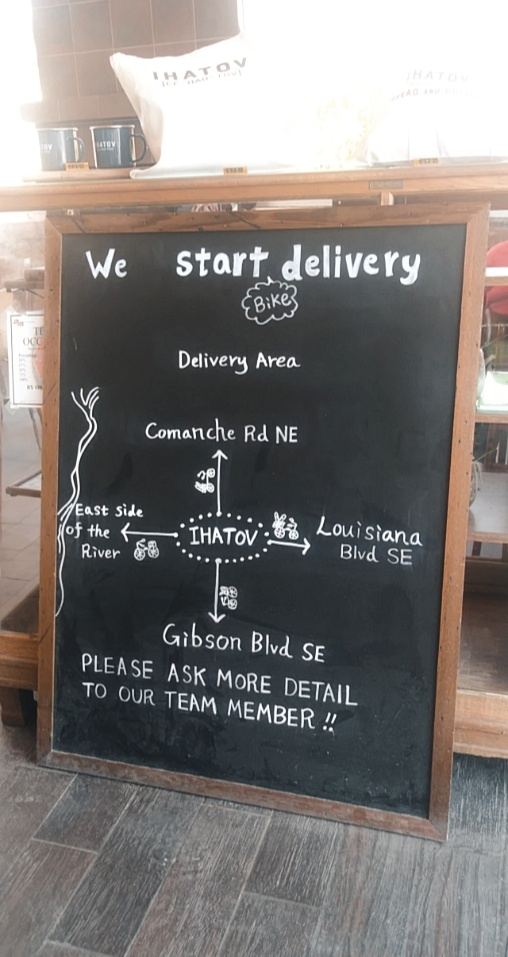 IHATOV
IHATOV
We start delivery
Bike
Delivery Area
Comanche Rd NE
East side
of the
River
IHATOV
Louisiana
Blvd SE
Gibson Blvd SE
PLEASE ASK MORE DETAIL
TO OUR TEAM MEMBER !!